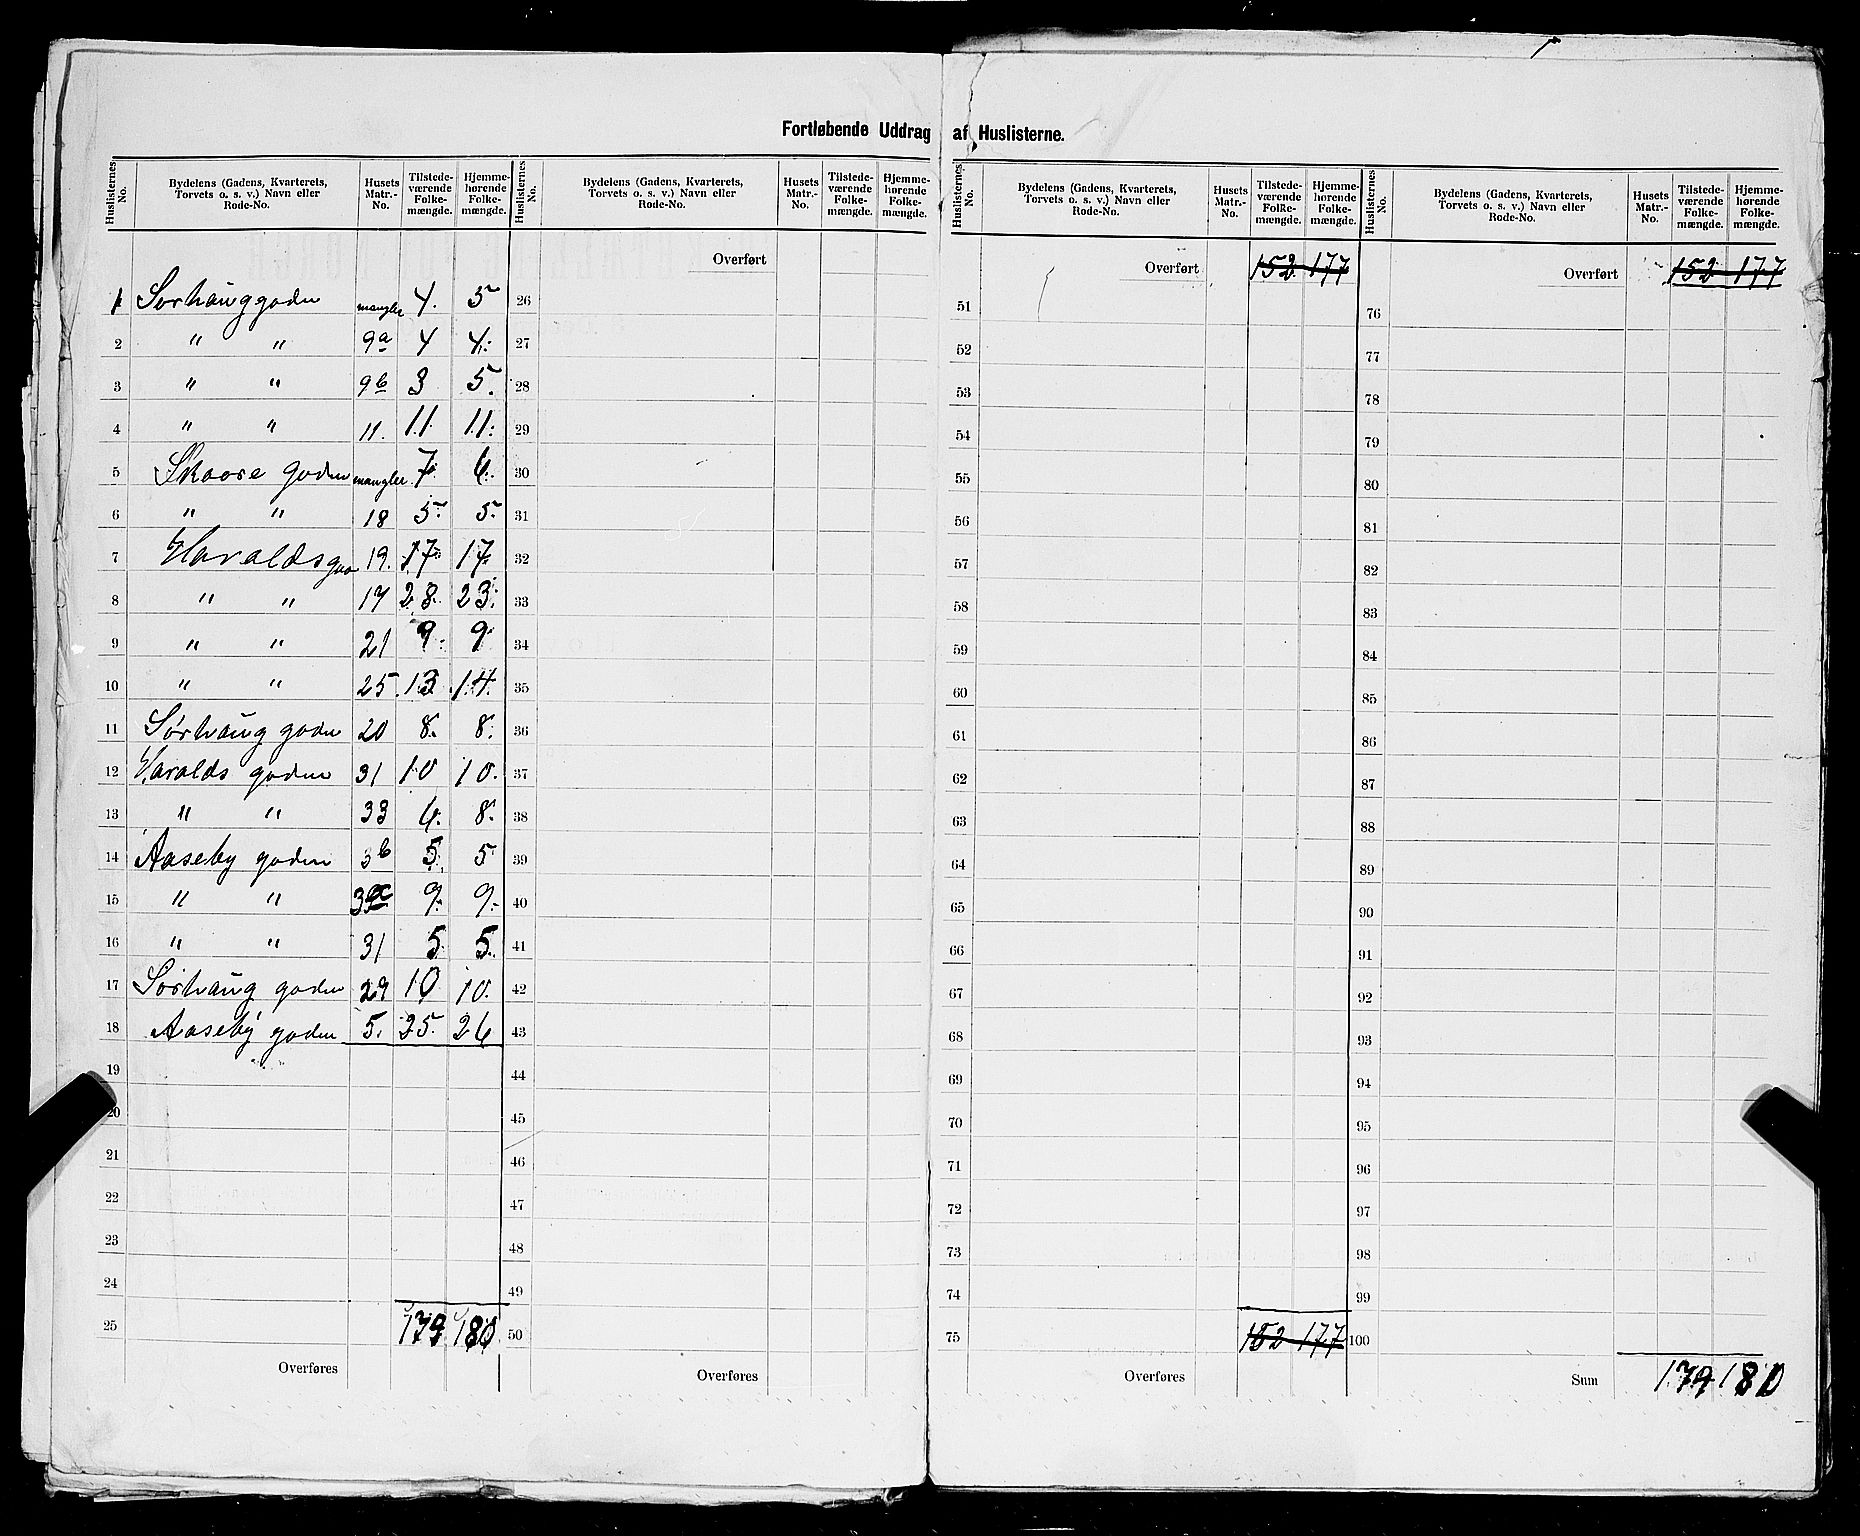 Fortløbende Uddrag af Huslisterne.
Huslisternes No. | Bydelens (Gadens, Kvarterets, Torvets o. s. v.) Navn eller Rode-No. | Husets Matr.-No. | Tilstedeværende Folkemængde. | Hjemmehørende Folkemængde.
1 Sørhauggaden mangler 4. 5
2 " " 9a 4 4.
3 " " 9b 3 5.
4 " " 11. 11. 11.
5 Skaare gaden mangler 7. 6.
6 " " 18 5. 5.
7 Haraldsgaa 19. 17. 17.
8 " " 17 28. 23.
9 " " 21 9. 9.
10 " " 25 13. 14.
11 Sørhaug gaden 20 8. 8.
12 Haralds gaden 31 10 10.
13 " " 33 6. 8.
14 Aaseby gaden 3b 5 5
15 " " 9. 9.
16 " " 31 5 5.
17 Sørhaug gaden 29 10 10.
18 Aaseby gaden 5. 25. 26
19
20
21
22
23
24
25 179 180
Overføres
Huslisternes No. | Bydelens (Gadens, Kvarterets, Torvets o. s. v.) Navn eller Rode-No. | Husets Matr.-No. | Tilstedeværende Folkemængde. | Hjemmehørende Folkemængde.
Overført
26
27
28
29
30
31
32
33
34
35
36
37
38
39
40
41
42
43
44
45
46
47
48
49
50
Overføres
Huslisternes No. | Bydelens (Gadens, Kvarterets, Torvets o. s. v.) Navn eller Rode-No. | Husets Matr.-No. | Tilstedeværende Folkemængde. | Hjemmehørende Folkemængde.
Overført 152 177
51
52
53
54
55
56
57
58
59
60
61
62
63
64
65
66
67
68
69
70
71
72
73
74
75 152 177
Overføres
Huslisternes No. | Bydelens (Gadens, Kvarterets, Torvets o. s. v.) Navn eller Rode-No. | Husets Matr.-No. | Tilstedeværende Folkemængde. | Hjemmehørende Folkemængde.
Overført 152 177
76
77
78
79
80
81
82
83
84
85
86
87
88
89
90
91
92
93
94
95
96
97
98
99
100
Sum 179 180